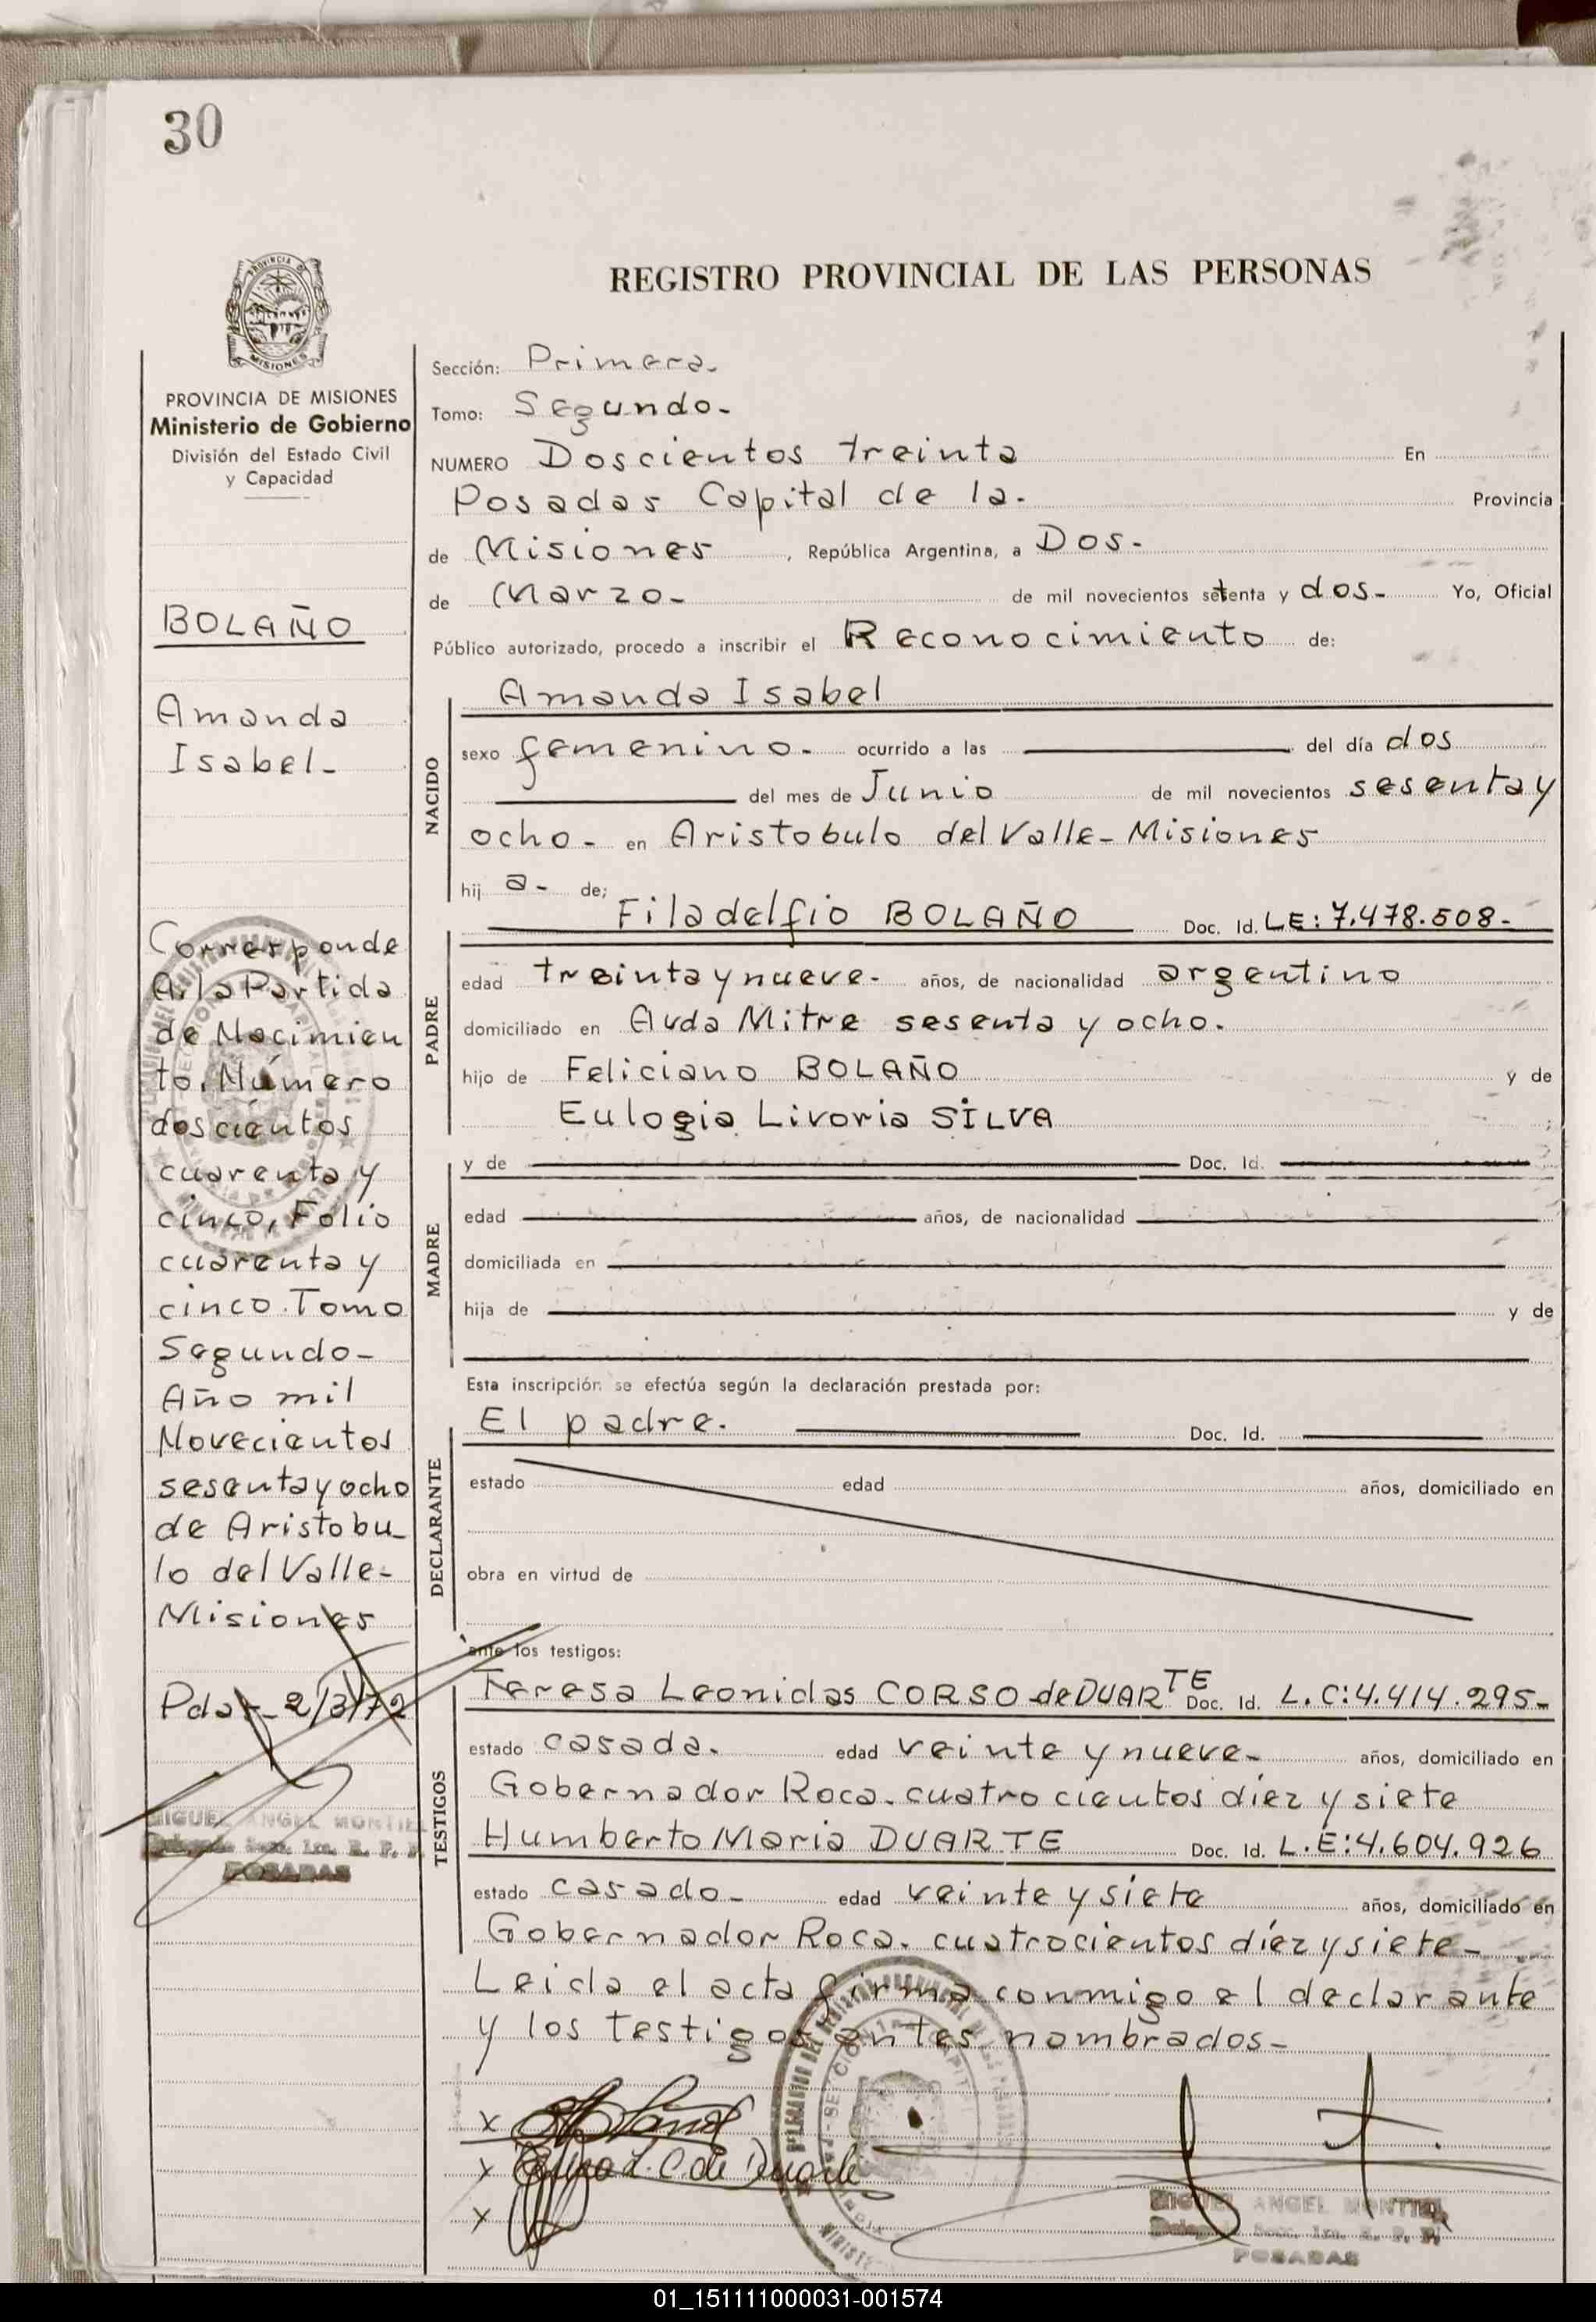 30
PROVINCIA DE
MISIONES
PROVINCIA DE MISIONES
Ministerio de Gobierno
División del Estado Civil
y Capacidad
BOLAÑO
Amanda
Isabel-
Corresponde
A la Partida
de Nacimien
to. Número
doscientos
cuarenta y
cinco, Folio
cuarenta y
cinco. Tomo
Segundo-
Año mil
Novecientos
sesenta y ocho
de Aristobu-
lo del Valle-
Misiones
Pdas- 2/3/72
MIGUEL ANGEL MONTIEL
POSADAS
REGISTRO PROVINCIAL DE LAS PERSONAS
Sección: Primera.
Tomo: Segundo.
NUMERO Doscientos treinta En
Posadas Capital de la. Provincia
de Misiones , República Argentina, a Dos.
de Marzo- de mil novecientos setenta y dos- Yo, Oficial
Público autorizado, procedo a inscribir el Reconocimiento de:
NACIDO
Amanda Isabel
sexo femenino. ocurrido a las del día dos
del mes de Junio de mil novecientos sesenta y
ocho- en Aristobulo del Valle- Misiones
hij a- de;
PADRE
Filadelfio BOLAÑO Doc. Id. LE: 7.478.508-
edad treinta y nueve- años, de nacionalidad argentino
domiciliado en Avda Mitre sesenta y ocho.
hijo de Feliciano BOLAÑO y de
Eulogia Livoria SILVA
MADRE
y de Doc. Id.
edad años, de nacionalidad
domiciliada en
hija de y de
Esta inscripción se efectúa según la declaración prestada por:
DECLARANTE
El padre. Doc. Id.
estado edad años, domiciliado en
obra en virtud de
ante los testigos:
TESTIGOS
Teresa Leonidas CORSO de DUARTE Doc. Id. L.C: 4.414.295-
estado casada. edad veinte y nueve- años, domiciliado en
Gobernador Roca. cuatrocientos diez y siete
Humberto Maria DUARTE Doc. Id. L.E: 4.604.926
estado casado- edad veinte y siete años, domiciliado en
Gobernador Roca. cuatrocientos diez y siete-
Leida el acta firma conmigo el declarante
y los testigos antes nombrados-
x
x L. C. de Duarte
x
MIGUEL ANGEL MONTIEL
POSADAS
01_151111000031-001574